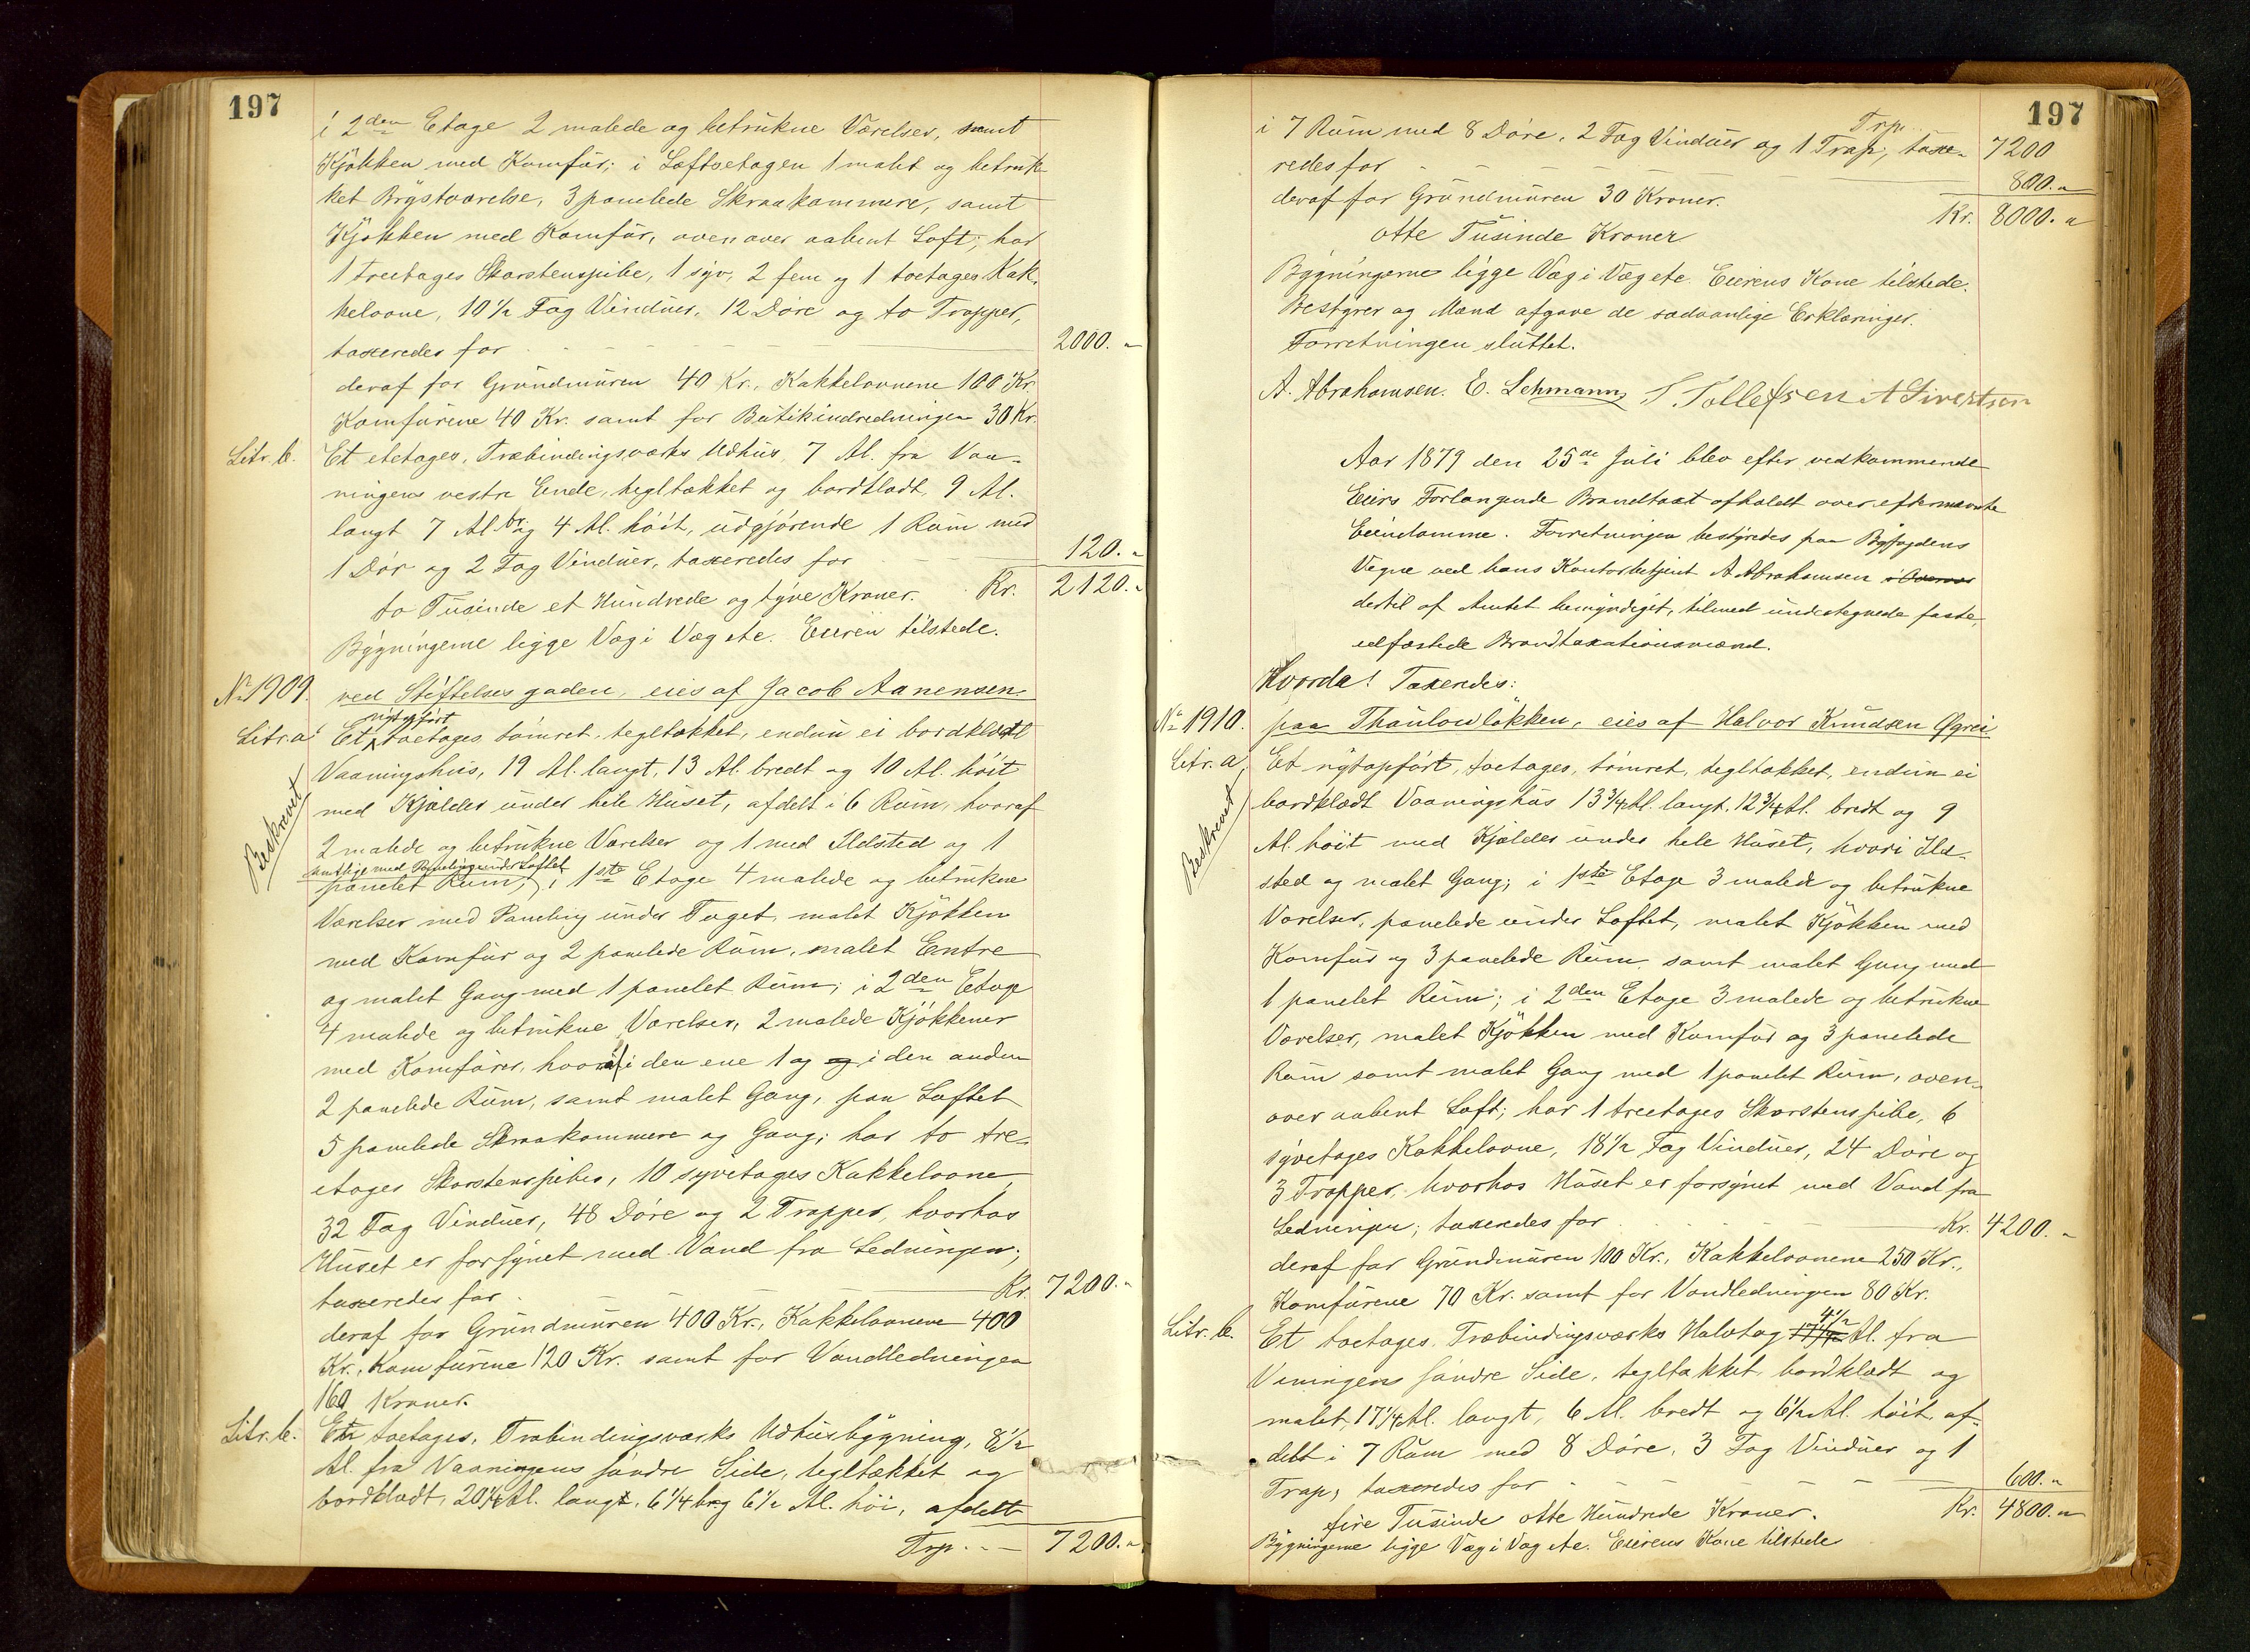 197
i 2den Etage 2 malede og betrukne Værelser, samt
Kjøkken med Komfur; i Loftsetagen 1 malet og betruk-
ket Brystværelse, 3 panelede Skraakammere, samt
Kjøkken med Komfur, ovenover aabent Loft; har
1 treetages Skorstenspibe, 1 syv, 2 fem og 1 toetages Kak-
kelovne, 10 1/2 Fag Vinduer, 12 Døre og to Trapper,
taxeredes for - - - 2000. "
deraf for Grundmuren 40 Kr., Kakkelovnene 100 Kr.
Komfurene 40 Kr. samt for Butikindredningen 30 Kr.
Litr. b. Et etetages, Træbindingsværks Udhus, 7 Al. fra Vaa-
ningens vestre Ende, tegltækket og bordklædt, 9 Al.
langt 7 Al. br. og 4 Al. høit, udgjørende 1 Rum med
1 Dør og 2 Fag Vinduer, taxeredes for - - 120. "
to Tusinde et Hundrede og tyve Kroner. Kr. 2120. "
Bygningerne ligge Væg i Væg etc. Eieren tilstede.
No 1909. ved Stiftelsesgaden, eies af Jacob Aanensen
Litr. a. Et nyt opført toetages tømret, tegltækket, endnu ei bordklædt
Vaaningshus, 19 Al. langt, 13 Al. bredt og 10 Al. høit
Beskrevet
med Kjælder under hele Huset, afdelt i 6 Rum, hvoraf
2 malede og betrukne Værelser og 1 med Ildsted og 1
samtlige med Paneling under Loftet
panelet Rum; i 1ste Etage 4 malede og betrukne
Værelser med Paneling under Taget, malet Kjøkken
med Komfur og 2 panelede Rum, malet Entre
og malet Gang med 1 panelet Rum; i 2den Etage
4 malede og betrukne Værelser, 2 malede Kjøkkener
med Komfurer, hvoraf i den ene 1 og og i den anden
2 panelede Rum, samt malet Gang, paa Loftet
5 panelede Skraakammere og Gang; har to tre-
etages Skorstenspiber, 10 syvetages Kakkelovne,
32 Fag Vinduer, 48 Døre og 2 Trapper, hvorhos
Huset er forsynet med Vand fra Ledningen;
taxeredes for - - - Kr. 7200. "
deraf for Grundmuren 400 Kr., Kakkelovnene 400
Kr., Komfurene 120 Kr. samt for Vandledningen
160 Kroner.
Litr. b. En toetages, Træbindingsværks Udhusbygning, 8 1/2
Al. fra Vaaningens søndre Side, tegltækket og
bordklædt, 20 1/4 Al. langt, 6 1/4 br. og 6 1/2 Al. høi, afdelt
Trp. - - 7200. "
197
Trp. 7200
i 7 Rum med 8 Døre, 2 Fag Vinduer og 1 Trap, taxe-
redes for - - - 800. "
deraf for Grundmuren 30 Kroner. Kr. 8000. "
otte Tusinde Kroner
Bygningerne ligge Væg i Væg etc. Eierens Kone tilstede.
Bestyrer og Mænd afgave de sædvanlige Erklæringer.
Forretningen sluttet.
A. Abrahamsen. E. Lehmann T. Tollefsen A Sivertsen
Aar 1879 den 25de Juli blev efter vedkommende
Eiers Forlangende Brandtaxt afholdt over efternævnte
Eiendomme. Forretningen bestyredes paa Byfogdens
Vegne ved hans Kontorbetjent A Abrahamsen
dertil af Amtet bemyndiget, tilmed undertegnede faste,
edfæstede Brandtaxationsmænd.
Hvorda! Taxeredes:
No 1910. paa Thaulowløkken, eies af Halvor Knudsen Øgrei
Litr. a. Et nytopført, toetages, tømret, tegltækket, endnu ei
bordklædt Vaaningshus 13 3/4 Al. langt, 12 3/4 Al. bredt og 9
Beskrevet
Al. høit med Kjælder under hele Huset, hvori Ild-
sted og malet Gang; i 1ste Etage 3 malede og betrukne
Værelser, panelede under Loftet, malet Kjøkken med
Komfur og 3 panelede Rum, samt malet Gang med
1 panelet Rum; i 2den Etage 3 malede og betrukne
Værelser, malet Kjøkken med Komfur og 3 panelede
Rum samt malet Gang med 1 panelet Rum, oven-
over aabent Loft; har 1 treetages Skorstenspibe, 6
syvetages Kakkelovne, 18 1/2 Fag Vinduer, 24 Døre og
3 Trapper, hvorhos Huset er forsynet med Vand fra
Ledningen; taxeredes for - - - Kr. 4200. "
deraf for Grundmuren 100 Kr., Kakkelovnene 250 Kr.,
Komfurene 70 Kr. samt for Vandledningen 80 Kr.
Litr. b. Et toetages, Træbindingsværks Halvtag 4 1/2 Al. fra
Vaningens søndre Side, tegltækket, bordklædt og
malet, 17 1/4 Al. langt, 6 Al. bredt og 6 1/2 Al. høit, af-
delt i 7 Rum med 8 Døre, 3 Fag Vinduer og 1
Trap, taxeredes for - - - 600. "
fire Tusinde otte Hundrede Kroner. Kr. 4800. "
Bygningerne ligge Væg i Væg etc. Eierens Kone tilstede